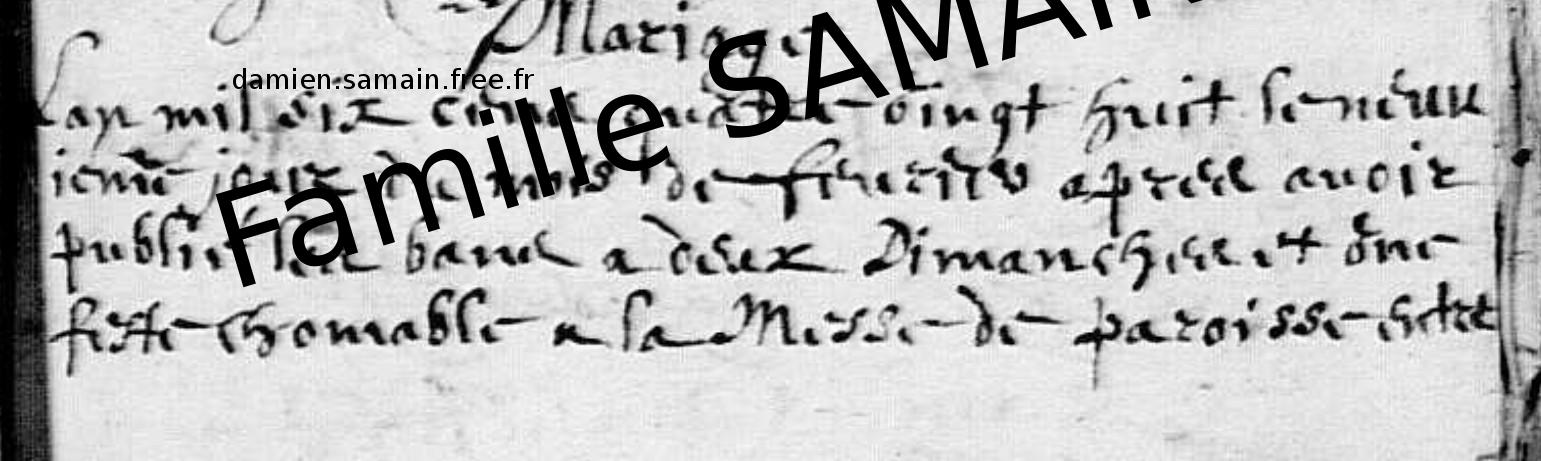 Mariage
damien.samain.free.fr
Famille SAMAIN
Lan mil six cens quatre vingt huit le neuu
ieme jour de mois de feurier apres auoir
publie les bans a deux Dimanches et une
feste chomable a la Messe de paroisse